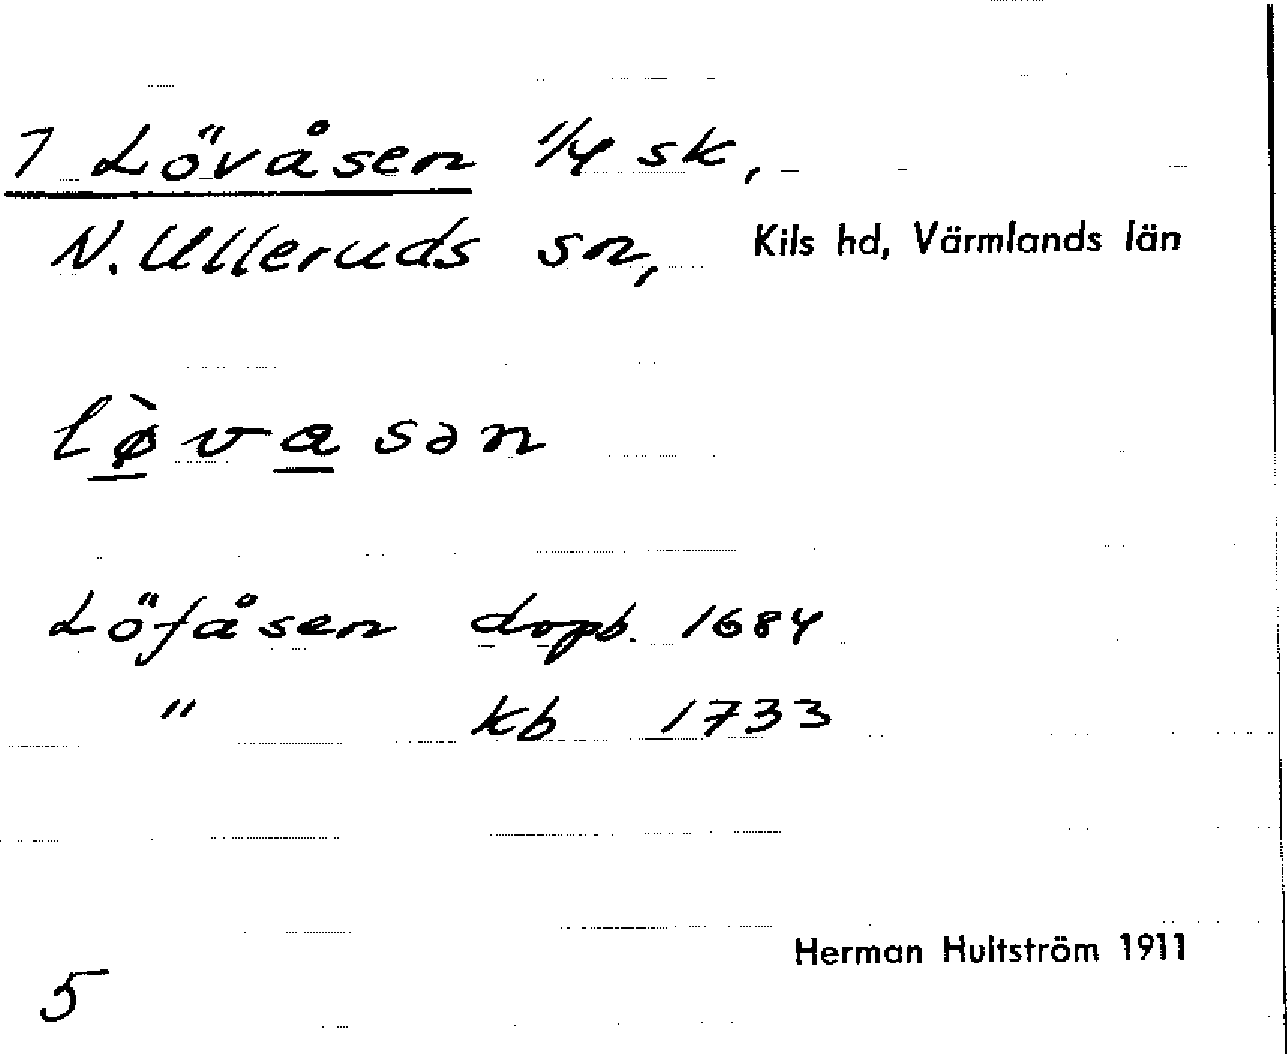 1 Lövåsen 1/4 sk,
N. Ulleruds sn, Kils hd, Värmlands län
lø̀vasən
Löfåsen dopb. 1684
" kb 1733
Herman Hultström 1911
5